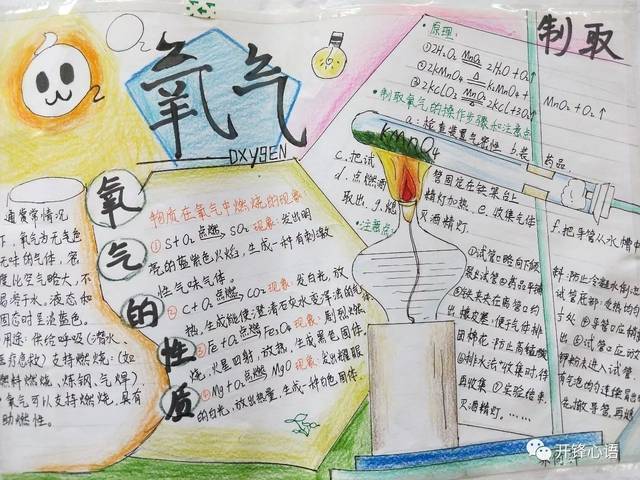 O₂
2
氧气
OXYGEN
制取
氧气的性质
通常常情况
下，氧气为无气色
无味的气体，密
度比空气略大，不
易溶于水，液态如
固态时呈淡蓝色。
用途：供给呼吸（潜水、
医疗急救）支持燃烧：（如
燃料燃烧，炼钢，气焊）
氧气可以支持燃烧，具有
助燃性。
物质在氧气中燃烧的现象
① S+O₂ 点燃 SO₂ 现象：发出明
亮的蓝紫色火焰，生成一种有刺激
性气味气体。
② C+O₂ 点燃 CO₂ 现象：发白光，放
热，生成能使澄清石灰水变浑浊的气体
③ Fe+O₂ 点燃 Fe₃O₄ 现象：剧烈燃
烧，火星四射，放热，生成黑色固体。
④ Mg+O₂ 点燃 MgO 现象：发出耀眼
的白光，放出热量，生成一种白色固体。
·原理：
①2H₂O₂ MnO₂ 2H₂O+O₂↑
②2KMnO₄ △ K₂MnO₄+ MnO₂+O₂↑
③2KClO₃ MnO₂ △ 2KCl+3O₂↑
·制取氧气的操作步骤和注意点
a：检查装置气密性 b.装 药品
KMnO₄
c.把试 管固定在铁架台上
d.点燃酒 精灯加热，e.收集气体 f.把导管从水槽中
取出，g.熄 灭酒精灯。
·注意点：
①试管口略向下倾
②药品平铺
试管底部，受热均匀
③铁夹夹在离管口约
④导管口应稍露
出橡皮塞，便于气体排
⑤试管口应放
团棉花，防止高锰酸
钾粉末进入试管
⑥排水法收集时，待
有气泡均匀连续冒出时
再收集 ⑦实验结束
先撤导管，再熄
灭酒精灯。……
开锋心语